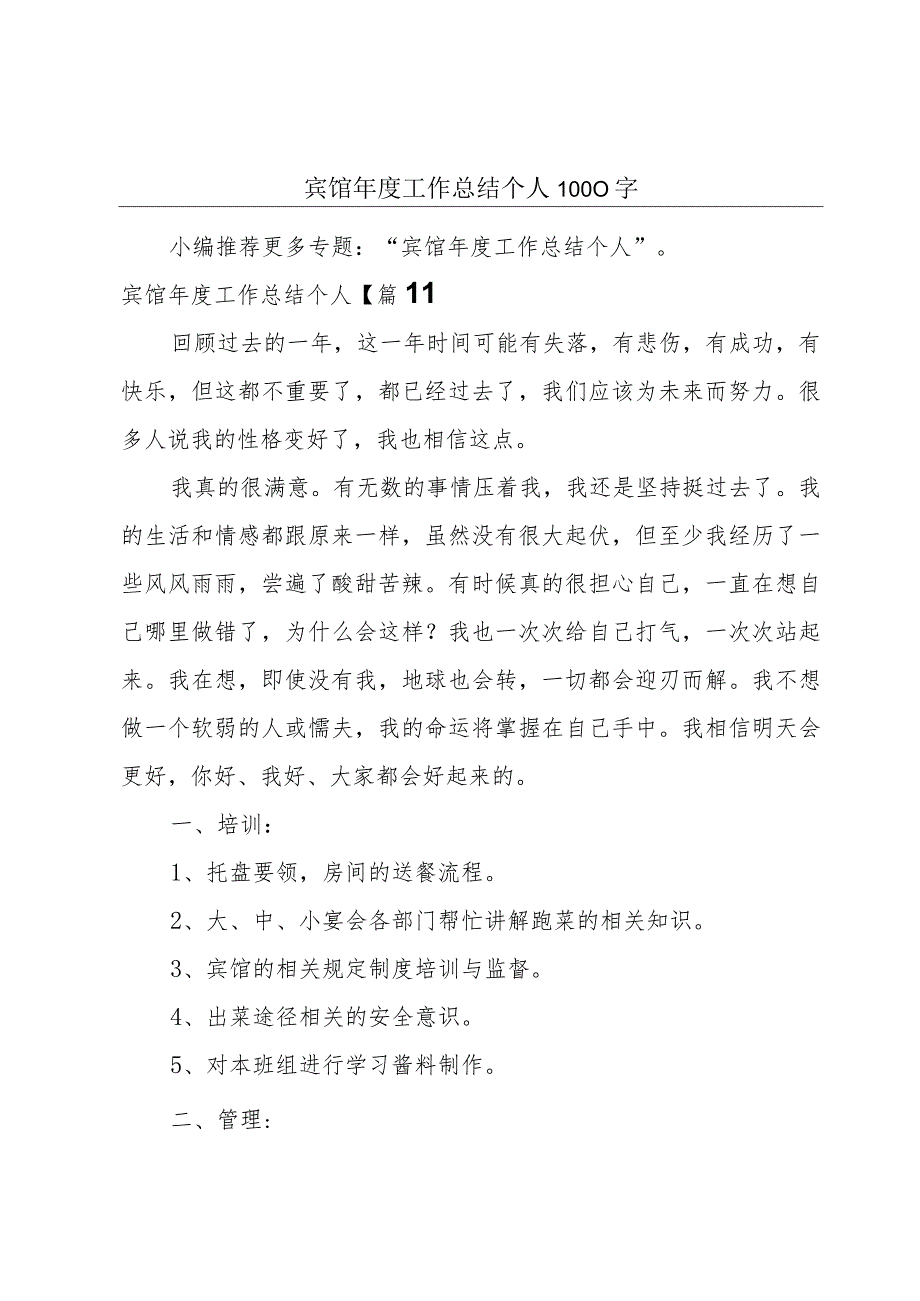 宾馆年度工作总结个人100O字
小编推荐更多专题：“宾馆年度工作总结个人”。
宾馆年度工作总结个人【篇11
回顾过去的一年，这一年时间可能有失落，有悲伤，有成功，有
快乐，但这都不重要了，都已经过去了，我们应该为未来而努力。很
多人说我的性格变好了，我也相信这点。
我真的很满意。有无数的事情压着我，我还是坚持挺过去了。我
的生活和情感都跟原来一样，虽然没有很大起伏，但至少我经历了一
些风风雨雨，尝遍了酸甜苦辣。有时候真的很担心自己，一直在想自
己哪里做错了，为什么会这样？我也一次次给自己打气，一次次站起
来。我在想，即使没有我，地球也会转，一切都会迎刃而解。我不想
做一个软弱的人或懦夫，我的命运将掌握在自己手中。我相信明天会
更好，你好、我好、大家都会好起来的。
一、培训：
1、托盘要领，房间的送餐流程。
2、大、中、小宴会各部门帮忙讲解跑菜的相关知识。
3、宾馆的相关规定制度培训与监督。
4、出菜途径相关的安全意识。
5、对本班组进行学习酱料制作。
二、管理：